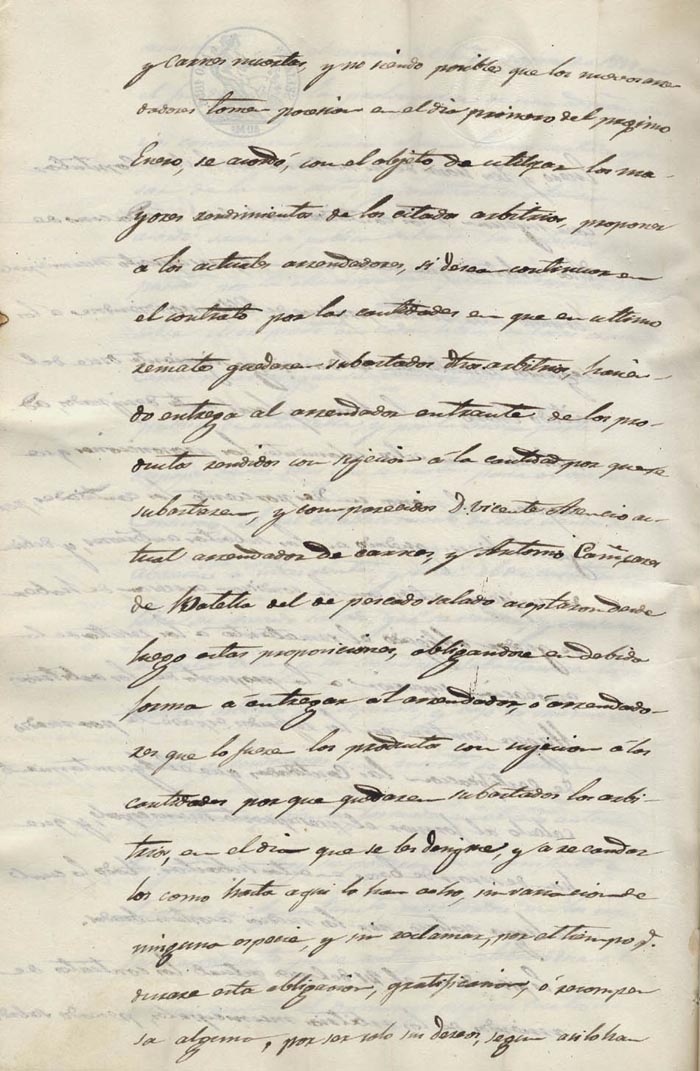 y carnes muertas, y no siendo posible que los nuevos arren
dadores tomen posesion en el dia primero del procsimo
Enero, se acordó, con el objeto de utilizar los ma-
yores rendimientos de los citados arbitrios, proponer
a los actuales arrendadores, si desean continuar en
el contrato por las cantidades en que en ultimo
remate quedaren subastados dhos arbitrios, hacien-
do entrega al arrendador entrante de los pro-
ductos rendidos con sujecion á la cantidad por que se
subastaren, y comparecidos D. Vicente Asencio ac-
tual arrendador de carnes, y Antonio Cañizares
de del de pescado salado aceptaron desde
luego estas proposiciones, obligandose en debida
forma á entregar al arrendador, ó arrendado-
res que lo fueren los productos con sujecion á las
cantidades por que quedaren subastados los arbi-
trios, en el dia que se les designe, y a recaudar
los como hasta aqui lo han echo, sin variacion de
ninguna especie, y sin reclamar, por el tiempo q.
durare esta obligacion, gratificacion, ó recompen
sa alguna, por ser solo sus deseos, segun asi lo han